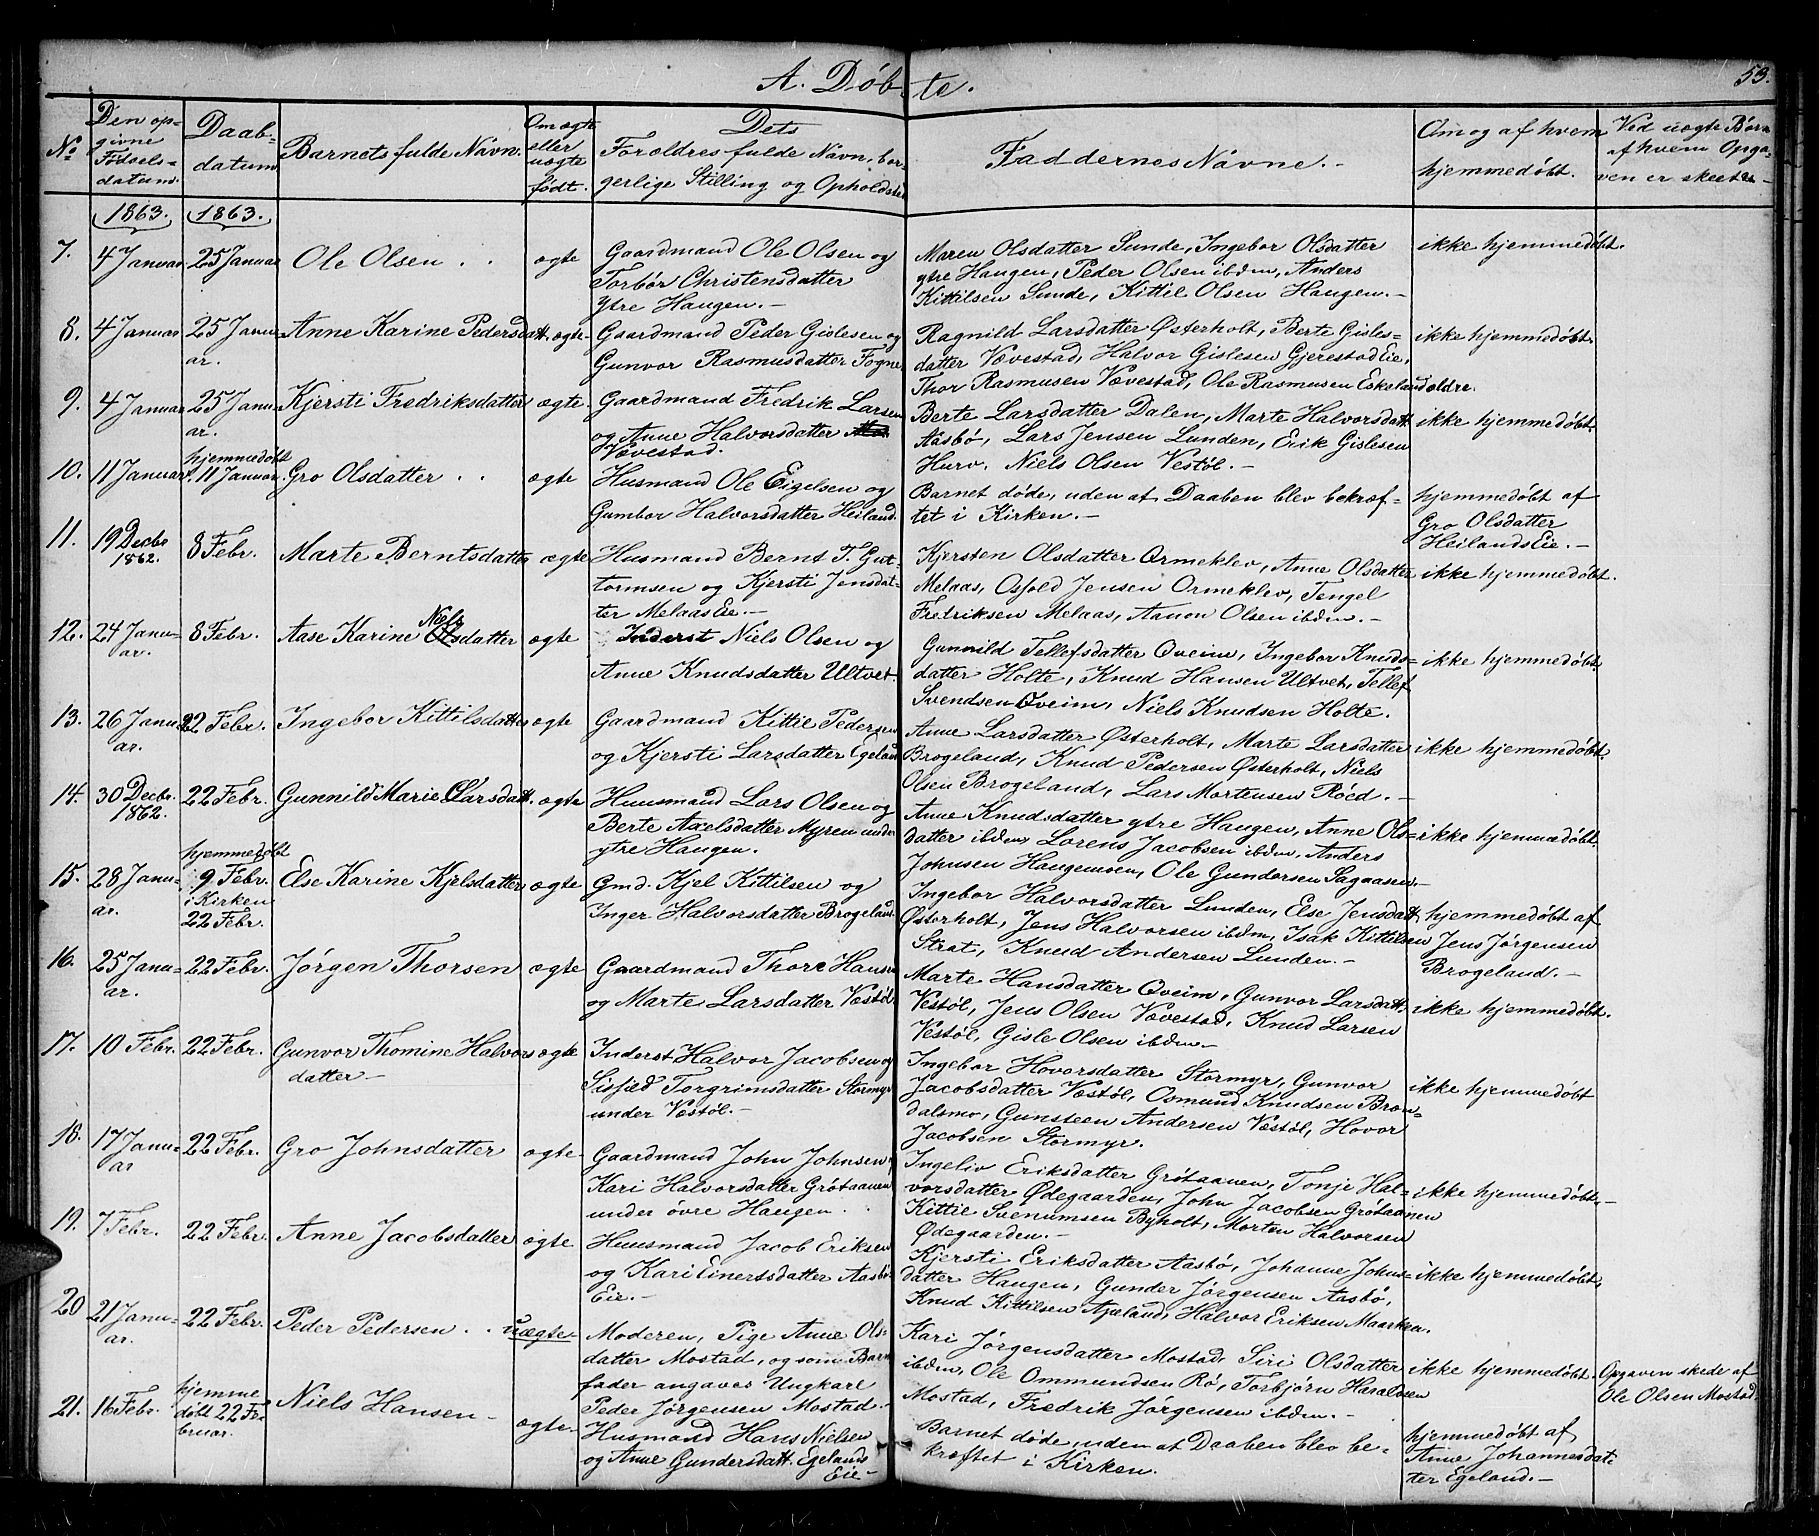 A. Døbte.
53.
No
Den opgivne Fødselsdatum.
Daabdatum
Barnets fulde Navn.
Om ægte eller uægte født.
Dets Forældres fulde Navn, borgerlige Stilling og Opholdsted
Faddernes Navne.
Om og af hvem hjemmedøbt.
Ved uægte Børn af hvem Opgaven er skeet
1863. 1863.
7. 4 Januar 25 Januar Ole Olsen ægte
Gaardmand Ole Olsen og
Torbør Christensdatter
Ytre Haugen.
Maren Olsdatter Sunde, Ingebor Olsdatter
ytre Haugen, Peder Olsen ibdm, Anders
Kittilsen Sunde, Kittil Olsen Haugen.
ikke hjemmedøbt.
8. 4 Januar 25 Januar. Anne Karine Pedersdatt. ægte
Gaardmand Peder Gislesen og
Gunvor Rasmusdatter Fogne
Ragnild Larsdatter Østerholt, Berte Gisles-
datter Vævestad, Halvor Gislesen GjerestadEie,
Thor Rasmusen Vævestad, Ole Rasmusen Eskeland ældre.
ikke hjemmedøbt.
9. 4 Januar 25 Januar. Kjersti Fredriksdatter ægte
Gaardmand Fredrik Larsen
og Anne Halvorsdatter
Vævestad.
Berte Larsdatter Dalen, Marte Halvorsdatt.
Aasbø, Lars Jensen Lunden, Erik Gislesen
Hurv. Niels Olsen Vestøl.
ikke hjemmedøbt.
10. 11 Januar hjemmedøbt 11 Januar. Gro Olsdatter ægte
Husmand Ole Eigelsen og
Gumbor Halvorsdatter Heiland.
Barnet døde, uden at Daaben blev bekræf-
tet i Kirken.
hjemmedøbt af
Gro Olsdatter
HeilandsEie.
11. 19 Decbr 1862. 8 Febr. Marte Berntsdatter ægte
Husmand Bernt T. Gut-
tormsen og Kjersti Jensdat-
ter MelaasEie.
Kjersten Olsdatter Ormeklev, Anne Olsdatter
Melaas, Osfold Jensen Ormeklev, Tengel
Fredriksen Melaas, Aanon Olsen ibdm.
ikke hjemmedøbt.
12. 24 Januar. 8 Febr. Aase Karine Nielsdatter ægte
Inderst Niels Olsen og
Anne Knudsdatter Ultvet.
Gunnild Tellefsdatter Qveim, Ingebor Knuds-
datter Holte, Knud Hansen Ultvet, Tellef
Svendsen Qveim, Niels Knudsen Holte.
ikke hjemmedøbt.
13. 26 Januar. 22 Febr. Ingebor Kittilsdatter ægte
Gaardmand Kittil Pedersen
og Kjersti Larsdatter Egeland
Anne Larsdatter Østerholt, Marte Larsdatter
Brogeland, Knud Pedersen Østerholt, Niels
Olsen Brogeland, Lars Mortensen Røed.
ikke hjemmedøbt.
14. 30 Decbr. 1862. 22 Febr. Gunnild Marie Larsdatt. ægte
Huusmand Lars Olsen og
Berte Axelsdatter Myren under
ytre Haugen.
Anne Knudsdatter ytre Haugen, Anne Ols-
datter ibdm, Lorens Jacobsen ibdm, Anders
Johnsen Haugemoen, Ole Gundersen Sagaasen.
ikke hjemmedøbt.
15. 28 Januar. hjemmedøbt 9 Febr. i Kirken 22 Febr. Else Karine Kjelsdatter ægte
Gmd. Kjel Kittilsen og
Inger Halvorsdatter Brogeland.
Ingebor Halvorsdatter Lunden, Else Jensdatt.
Østerholt, Jens Halvorsen ibdm, Isak Kittilsen
Strat, Knud Andersen Lunden.
hjemmedøbt af
Jens Jørgensen
Brogeland.
16. 25 Januar. 22 Febr. Jørgen Thorsen ægte
Gaardmand Thore Hansen
og Marte Larsdatter Væstøl
Marte Hansdatter Qveim, Gunvor Larsdatt.
Vestøl, Jens Olsen Vævestad, Knud Larsen
Vestøl, Gisle Olsen ibdm.
ikke hjemmedøbt.
17. 10 Febr. 22 Febr. Gunvor Thomine Halvors
datter ægte
Inderst Halvor Jacobsen og
Sisfed Torgrimsdatter Stormyr
under Væstøl.
Ingebor Hovorsdatter Stormyr, Gunvor
Jacobsdatter Væstøl, Osmund Knudsen Brom-
dalsmo, Gunsteen Andersen Væstøl, Hovor
Jacobsen Stormyr.
ikke hjemmedøbt
18. 17 Januar 22 Febr. Gro Johnsdatter ægte
Gaardmand John Johnsen,
Kari Halvorsdatter Grótaanen
under øvre Haugen.
Ingeliv Eriksdatter Grøtaanen, Tonje Hal-
vorsdatter Ødegaarden, John Jacobsen Grøtaanen
Kittil Svenumsen Byholt, Morten Halvorsen
Ødegaarden.
ikke hjemmedøbt.
19. 7 Febr. 22 Febr. Anne Jacobsdatter ægte
Huusmand Jacob Eriksen
og Kari Einertsdatter Aasbø
Eie.
Kjersti Eriksdatter Aasbø, Johanne Johns-
datter Haugen, Gunder Jørgensen Aasbø,
Knud Kittilsen Ajeland, Halvor Eriksen Maarken.
ikke hjemmedøbt.
20 21 Januar. 22 Febr. Peder Pedersen uægte
Moderen, Pige Anne Ols-
datter Mostad, og som Barn
fader angaves Ungkarl
Peder Jørgensen Mostad.
Kari Jørgensdatter Mostad, Siri Olsdatter
ibdm, Ole Ommundsen Rø, Torbjørn Haralsen
Mostad, Fredrik Jørgensen ibdm.
ikke hjemmedøbt.
Opgaven skede af
Ole Olsen Mostad.
21. 16 Febr. hjemmedøbt 22 Februar. Niels Hansen ægte.
Husmand Hans Nielsen
og Anne Gundersdatt. Egelands
Eie
Barnet døde, uden at Daaben blev be-
kræftet i Kirken.
hjemmedøbt af
Anne Johannesdat-
ter Egeland.